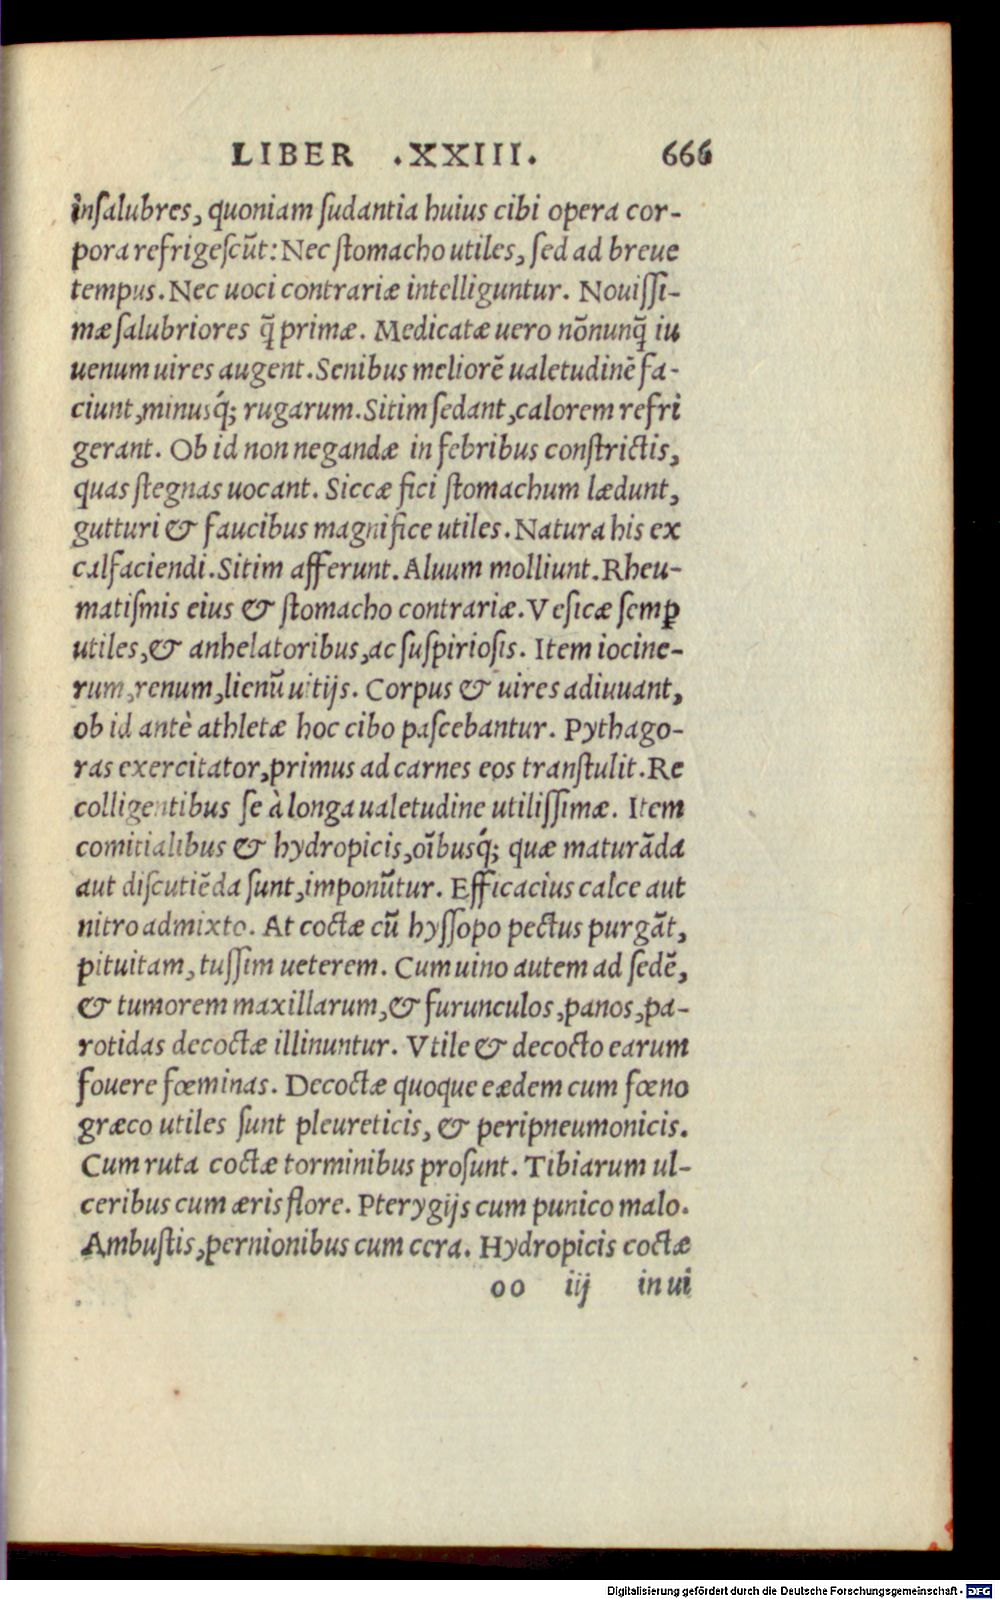 LIBER .XXIII. 666
inſalubres, quoniam ſudantia huius cibi opera cor-
pora refrigeſcūt: Nec ſtomacho utiles, ſed ad breue
tempus. Nec uoci contrariæ intelliguntur. Nouiſſi-
mæ ſalubriores q̃ primæ. Medicatæ uero nōnunq̃ iu
uenum uires augent. Senibus meliorē ualetudinē fa-
ciunt, minusq́; rugarum. Sitim ſedant, calorem refri
gerant. Ob id non negandæ in febribus conſtrictis,
quas ſtegnas uocant. Siccæ fici ſtomachum lædunt,
gutturi & faucibus magnifice utiles. Natura his ex
calfaciendi. Sitim afferunt. Aluum molliunt. Rheu-
matiſmis eius & ſtomacho contrariæ. Veſicæ ſemꝑ
utiles, & anhelatoribus, ac ſuſpirioſis. Item iocine-
rum, renum, lienū uitijs. Corpus & uires adiuuant,
ob id antè athletæ hoc cibo paſcebantur. Pythago-
ras exercitator, primus ad carnes eos tranſtulit. Re
colligentibus ſe à longa ualetudine utiliſſimæ. Item
comitialibus & hydropicis, oībusq́; quæ maturāda
aut diſcutiēda ſunt, imponūtur. Efficacius calce aut
nitro admixto. At coctæ cū hyſſopo pectus purgāt,
pituitam, tuſſim ueterem. Cum uino autem ad ſedē,
& tumorem maxillarum, & furunculos, panos, pa-
rotidas decoctæ illinuntur. Vtile & decocto earum
fouere fœminas. Decoctæ quoque eædem cum fœno
græco utiles ſunt pleureticis, & peripneumonicis.
Cum ruta coctæ torminibus proſunt. Tibiarum ul-
ceribus cum æris flore. Pterygijs cum punico malo.
Ambuſtis, pernionibus cum cera. Hydropicis coctæ
oo iij in ui
Digitalisierung gefördert durch die Deutsche Forschungsgemeinschaft - DFG